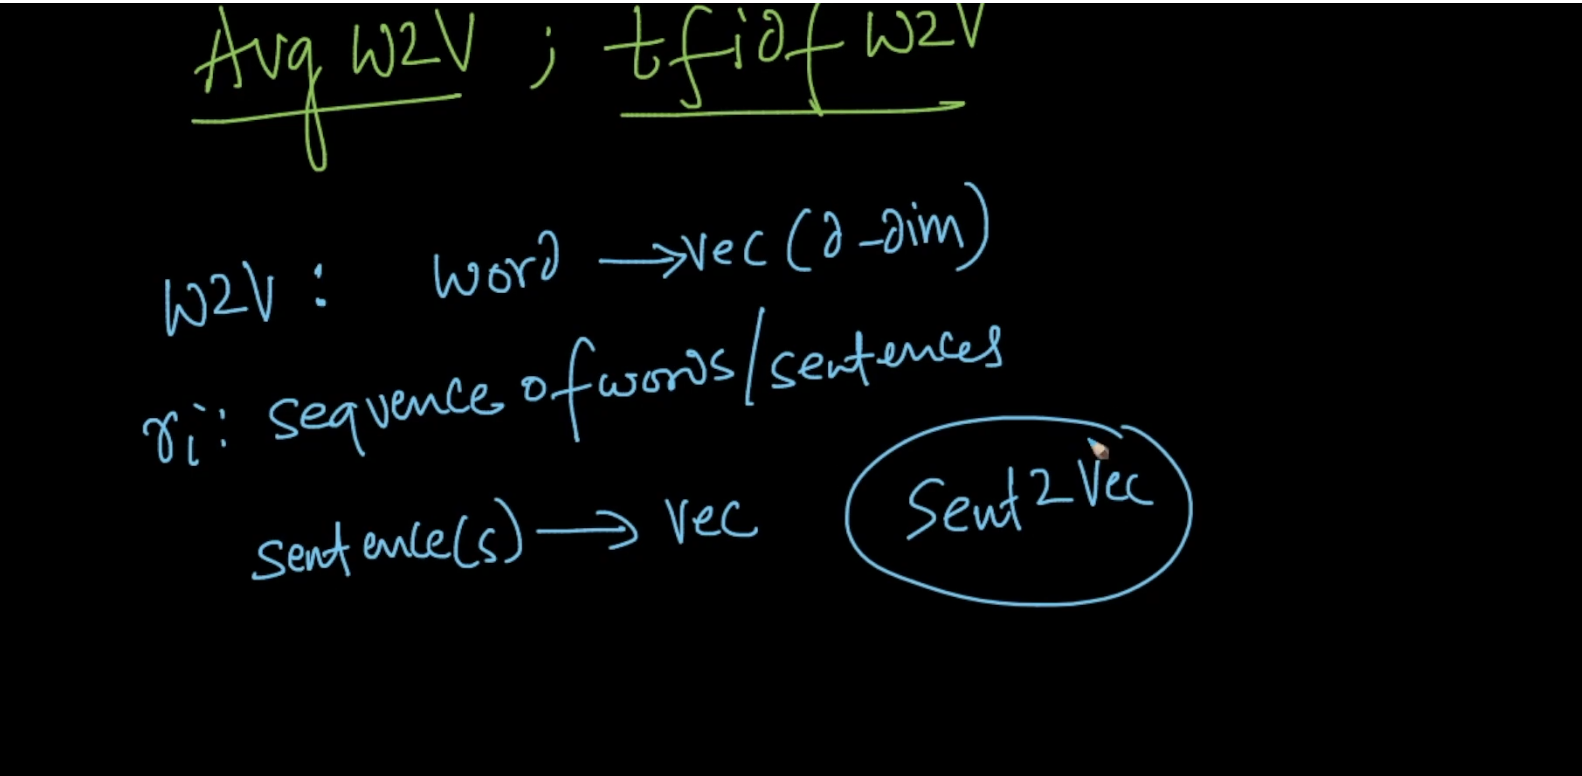 Avg W2V ; tfidf W2V
W2V : word → vec (d-dim)
ri: sequence of words/sentences
sentence(s) → vec Sent2Vec